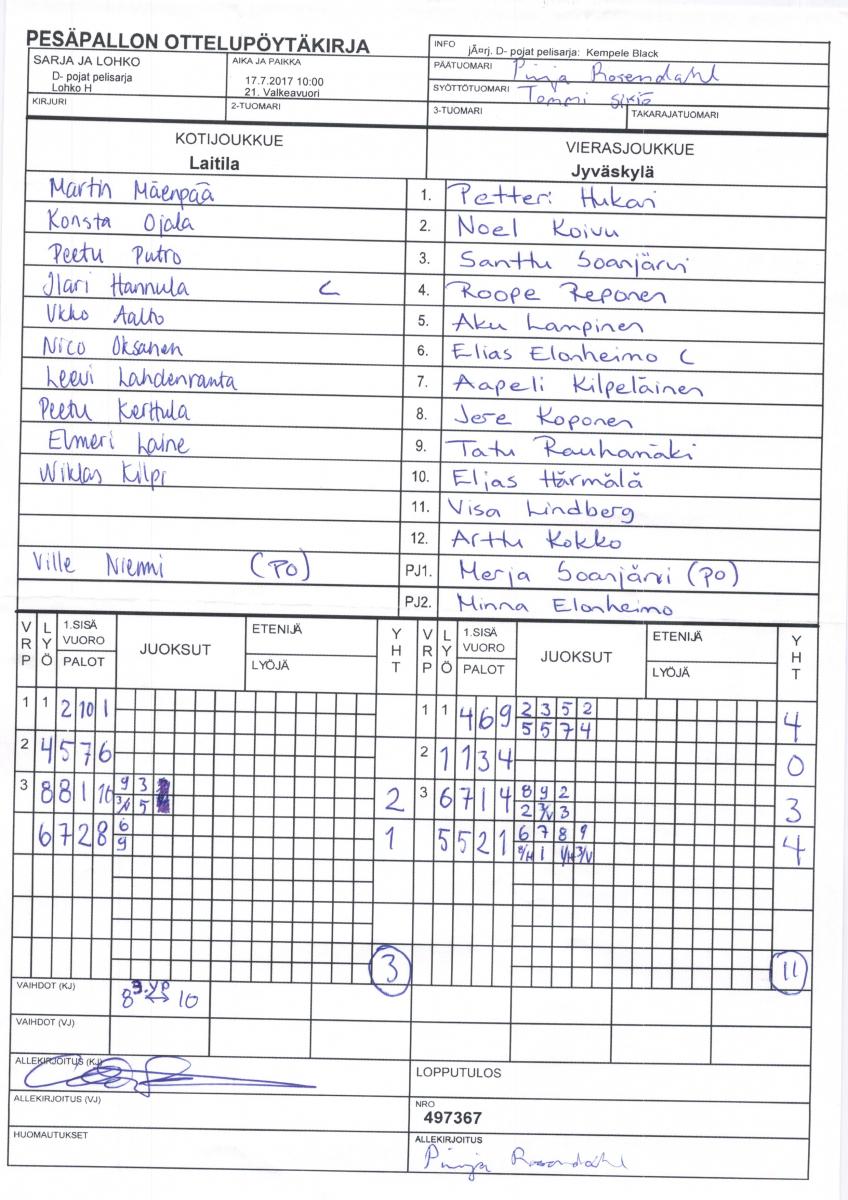 PESÄPALLON OTTELUPÖYTÄKIRJA
INFO jÃ¤rj. D- pojat pelisarja: Kempele Black
SARJA JA LOHKO
D- pojat pelisarja
Lohko H
AIKA JA PAIKKA
17.7.2017 10:00
21. Valkeavuori
PÄÄTUOMARI Pinja Rosendahl
SYÖTTÖTUOMARI Tommi
KIRJURI
2-TUOMARI
3-TUOMARI
TAKARAJATUOMARI
KOTIJOUKKUE
Laitila
VIERASJOUKKUE
Jyväskylä
Martin Mäenpää 1. Petteri Hukari
Konsta Ojala 2. Noel Koivu
Peetu Putro 3. Santtu Soanjärvi
Ilari Hannula C 4. Roope Reponen
Ukko Aalto 5. Aku Lampinen
Nico Oksanen 6. Elias Elonheimo C
Leevi Lahdenranta 7. Aapeli Kilpeläinen
Peetu Kerttula 8. Jere Koponen
Elmeri Laine 9. Tatu Rauhamäki
Niklas Kilpi 10. Elias Härmälä
11. Visa Lindberg
12. Arttu Kokko
Ville Niemi (PO) PJ1. Merja Soanjärvi (PO)
PJ2. Minna Elonheimo
VRP LYÖ 1.SISÄ VUORO PALOT JUOKSUT ETENIJÄ LYÖJÄ YHT VRP LYÖ 1.SISÄ VUORO PALOT JUOKSUT ETENIJÄ LYÖJÄ YHT
1 1 2 10 1 1 1 4 6 9 2 3 5 2 4
5 5 7 4
2 4 5 7 6 2 1 1 3 4 0
3 8 8 1 10 9 3 2 3 6 7 1 4 8 9 2 3
3/V 5 2 3/V 3
6 7 2 8 6 1 5 5 2 1 6 7 8 9 4
9 8/H 1 1/H 3/V
3 11
VAIHDOT (KJ) 3.VP
8 ↔ 10
VAIHDOT (VJ)
ALLEKIRJOITUS (KJ)
LOPPUTULOS
ALLEKIRJOITUS (VJ)
NRO
497367
HUOMAUTUKSET
ALLEKIRJOITUS
Pinja Rosendahl